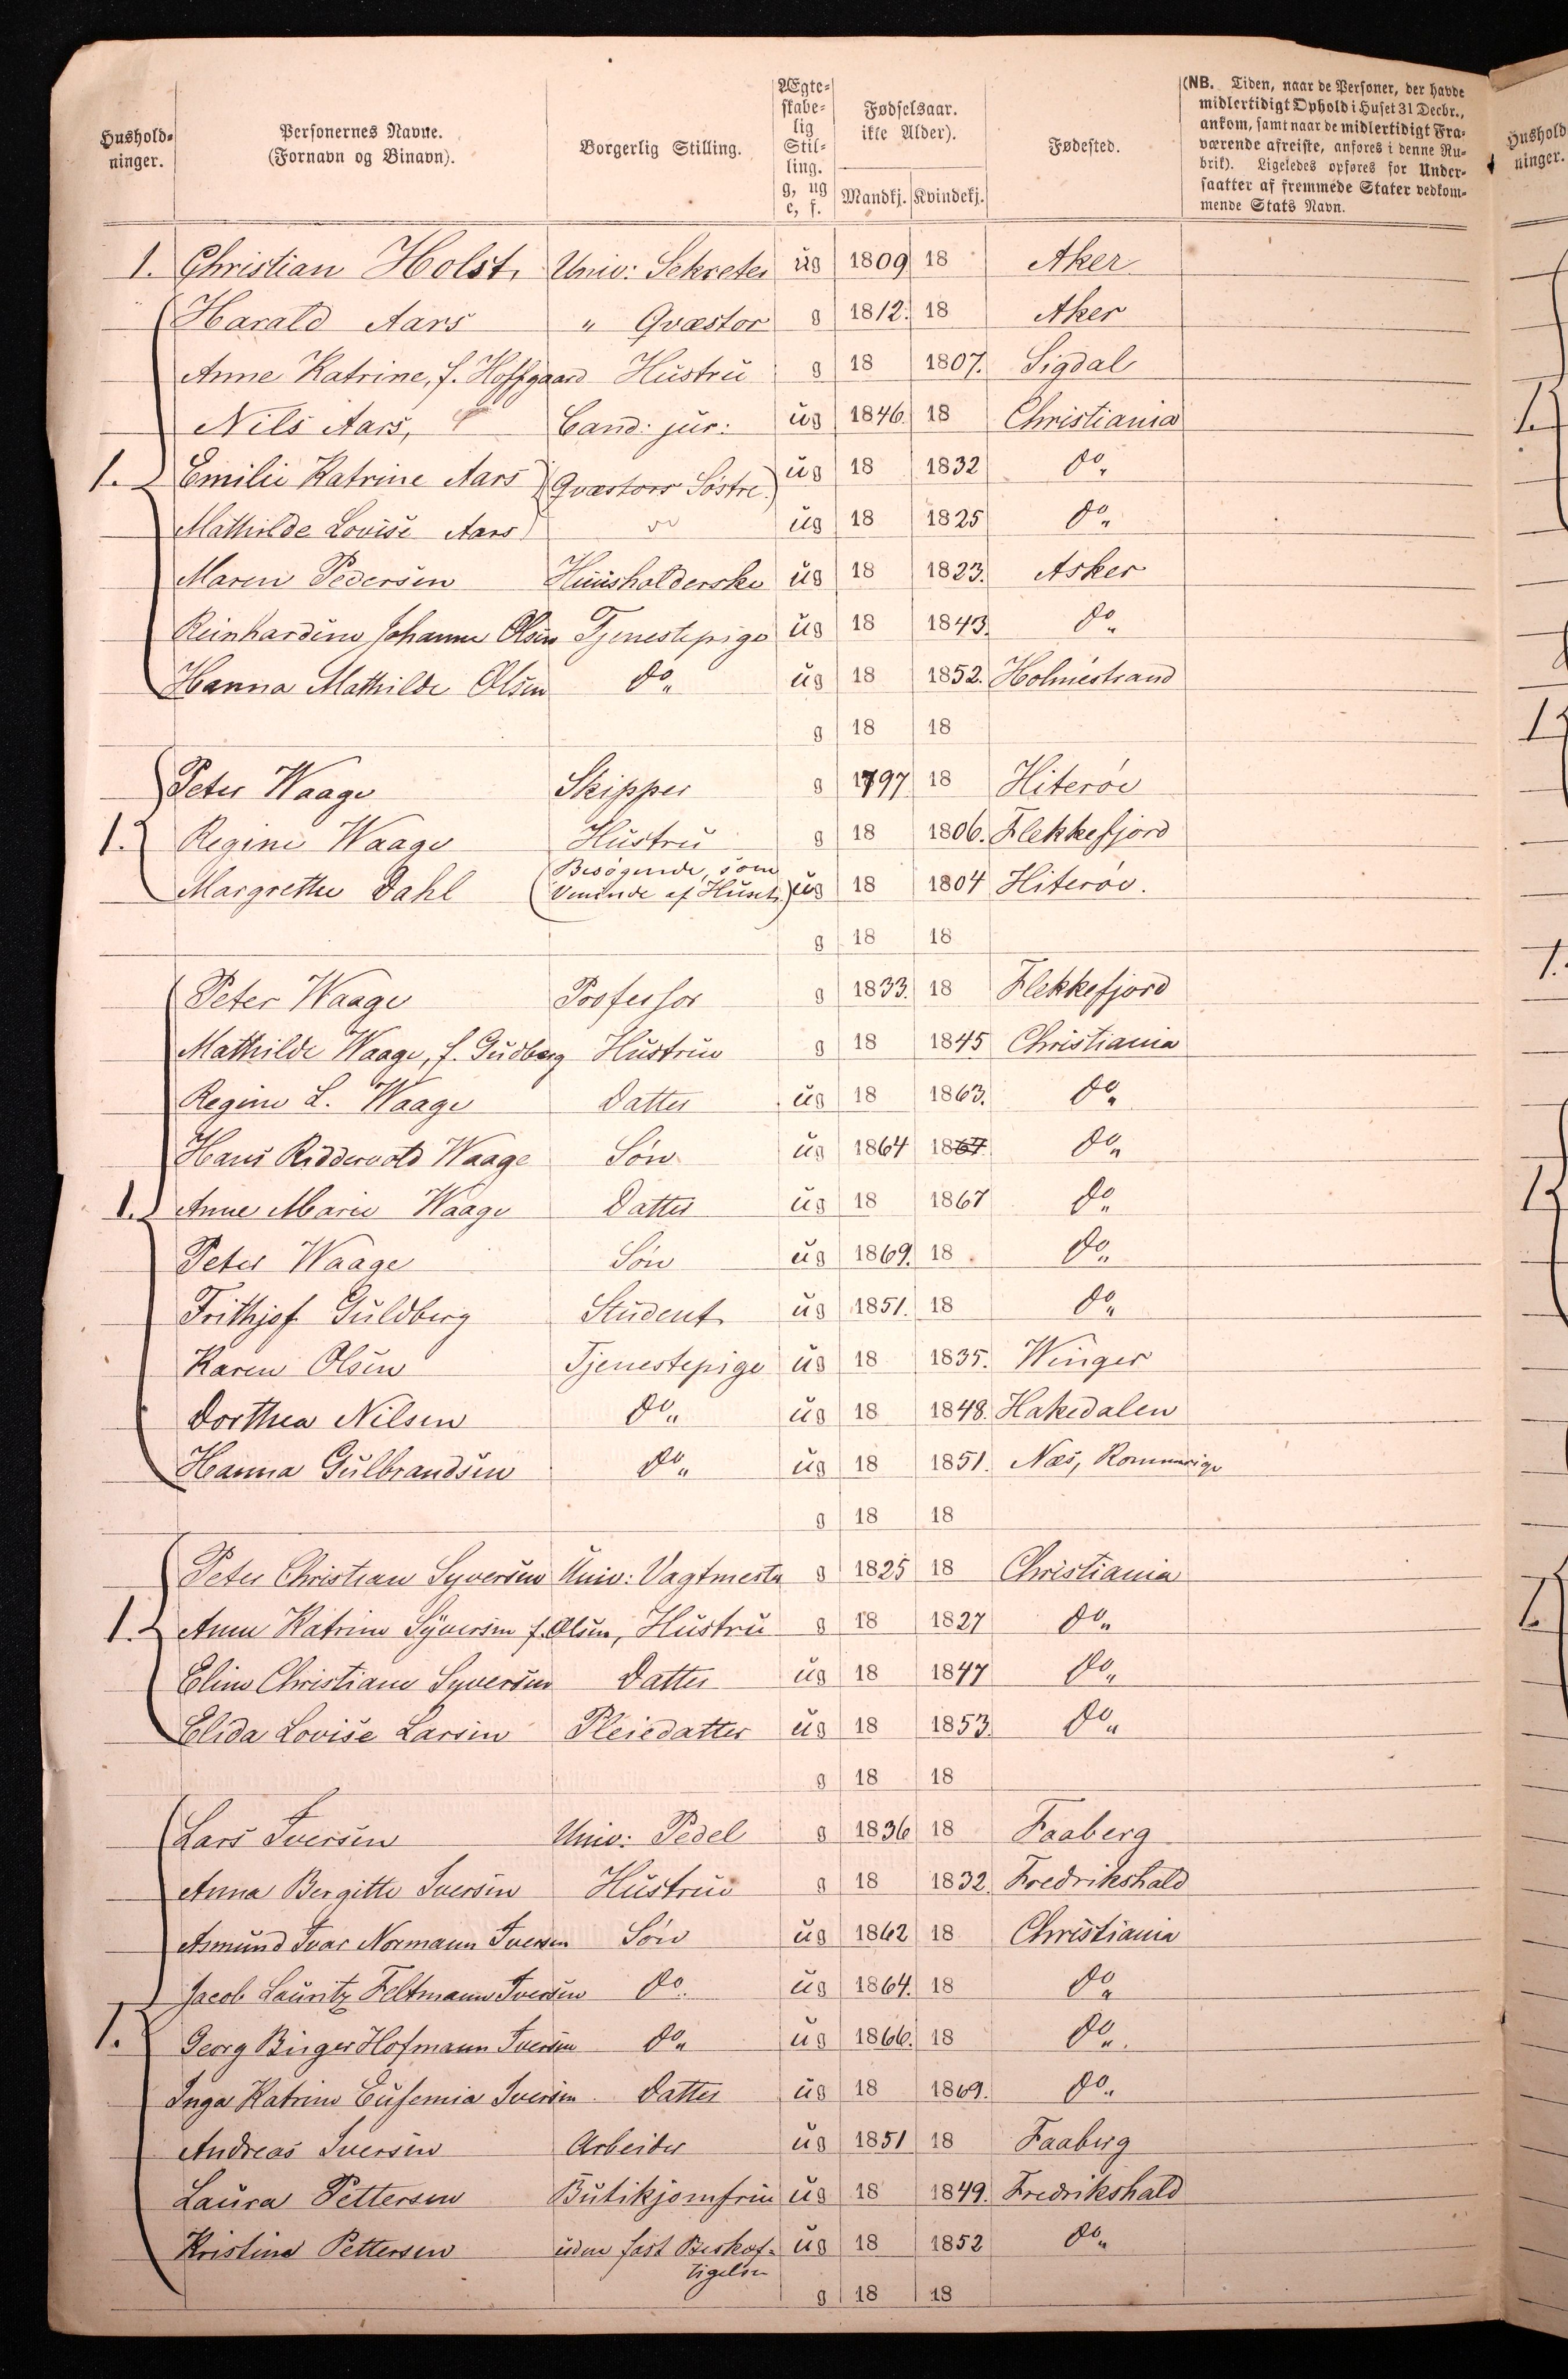 Hushold-
ninger.
Personernes Navne.
(Fornavn og Binavn).
Borgerlig Stilling.
Ægte-
skabe-
lig
Stil-
ling.
g, ug
e, f.
Fødselsaar.
ikke Alder).
Mandkj. Kvindekj.
Fødested.
(NB. Tiden, naar de Personer, der havde
midlertidigt Ophold i Huset 31 Decbr.,
ankom, samt naar de midlertidigt Fra-
værende afreiste, anføres i denne Ru-
brik). Ligeledes opføres for Under-
saatter af fremmede Stater vedkom-
mende Stats Navn.
Hushold
ninger.
1. Christian Holst, Univ: Sekretær ug 1809 18 Aker
Harald Aars " Qvæstor g 1812. 18 Aker
Anne Katrine, f. Hoffgaard Hustru g 18 1807. Sigdal
Nils Aars, Cand: jur: ug 1846. 18 Christiania
1. Emilie Katrine Aars (Qvæstors Søstre.) ug 18 1832 do„
Mathilde Lovise Aars ug 18 1825 do„
Maren Pedersen Huusholderske ug 18 1823. Asker
Reinhardine Johanne Olsen Tjenestepige ug 18 1843. do„
Hanna Mathilde Olsen do„ ug 18 1852. Holmestrand
g 18 18
Peter Waage Skipper g 1797 18 Hiterøe
1. Regine Waage Hustru g 18 1806. Flekkefjord
Margrethe Dahl (Besøgende, som
Veninde af Huset.) ug 18 1804 Hiterøe.
g 18 18
Peter Waage Professor g 1833. 18 Flekkefjord
Mathilde Waage, f. Guldberg Hustrue g 18 1845 Christiania
Regine L. Waage Datter ug 18 1863. do„
Hans Riddervold Waage Søn ug 1864 1867 do„
1. Anne Marie Waage Datter ug 18 1867 do„
Peter Waage Søn ug 1869. 18 do„
Frithjof Guldberg Student ug 1851. 18 do„
Karen Olsen Tjenestepige ug 18 1835. Winger
Dorthea Nilsen do„ ug 18 1848. Hakedalen
Hanna Gulbrandsen do„ ug 18 1851. Næs, Romerige
g 18 18
Peter Christian Syversen Univ: Vagtmester g 1825 18 Christiania
1. Anne Katrine Syversen f. Olsen, Hustru g 18 1827 do„
Eline Christiane Syversen Datter ug 18 1847 do„
Elida Lovise Larsen Pleiedatter ug 18 1853. do„
g 18 18
Lars Iversen Univ: Pedel g 1836 18 Faaberg
Anna Bergitte Iversen Hustrue g 18 1832. Fredrikshald
Asmund Ivar Normann Iversen Søn ug 1862 18 Christiania
Jacob Lauritz Feltmann Iversen do. ug 1864. 18 do„
1. Georg Birger Hofmann Iversen do„ ug 1866. 18 do„.
Inga Katrine Eufemia Iversen Datter ug 18 1869. do„
Andreas Iversen Arbeider ug 1851 18 Faaberg
Laura Pettersen Butikjomfrue ug 18 1849. Fredrikshald
Kristine Pettersen uden fast Beskæf-
tigelse ug 18 1852 do„
g 18 18